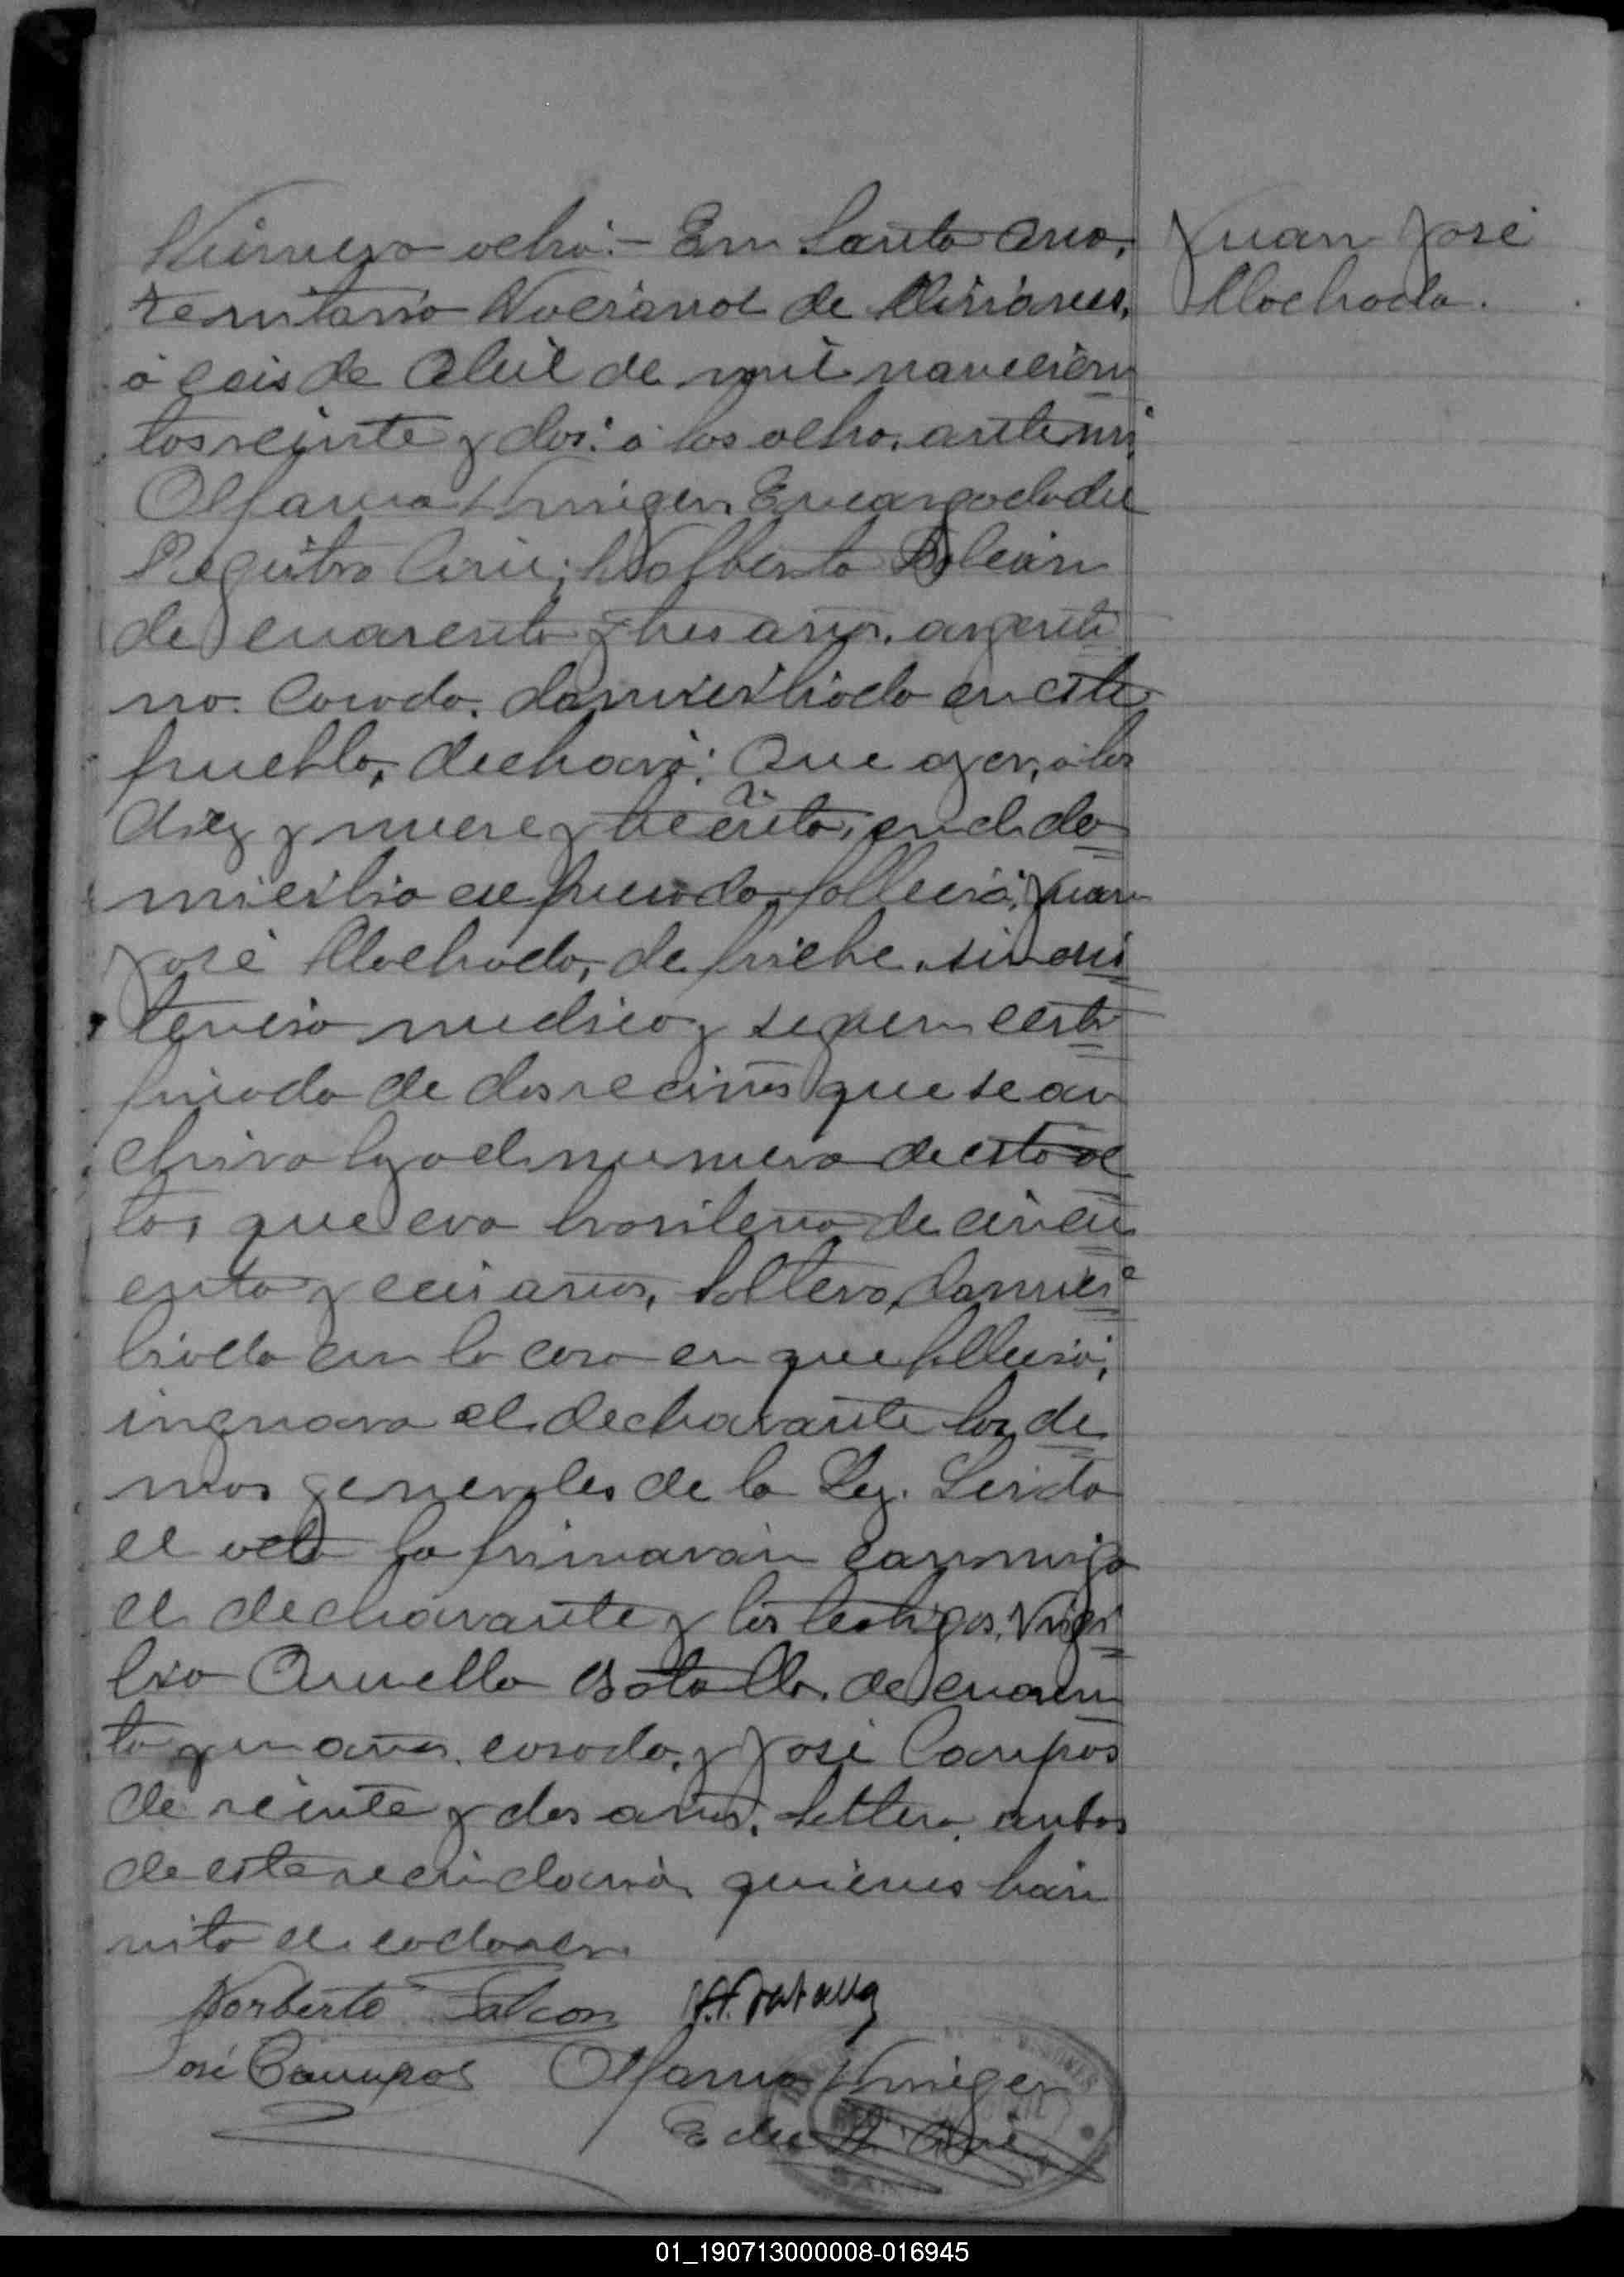 Número ocho.- En Santa Ana,
territorio Nacional de Misiones,
á seis de Abril de mil novecien
tos veinte y dos: á las ocho, ante mi,
Encargado del
Registro Civil, Norberto Falcón
de cuarenta y tres años, argenti
no, casado, domiciliado en este
pueblo, declaró: Que ayer, á las
diez y nueve y treinta, en el do
micilio expresado, falleció, Juan
José Machado, de fiebre, sin asis
tencia medica, segun certi
ficado de dos vecinos que se ar
chiva bajo el numero de esta ac
ta, que era brasilero, de cincu
enta y seis años, soltero, domici
liado en la casa en que falleció,
ignora el declarante las de
mas generales de la Ley. Leida
el acta la firmarán conmigo
el declarante y los testigos, Virgi
lio Batalla, de cuaren
ta y un años, casado, y José Campos
de veinte y dos años, soltero, ambos
de este vecindario, quienes han
visto el cadaver.
Norberto Falcon
José Campos
E. del R. Civil
Juan José
Machado.
01_190713000008-016945